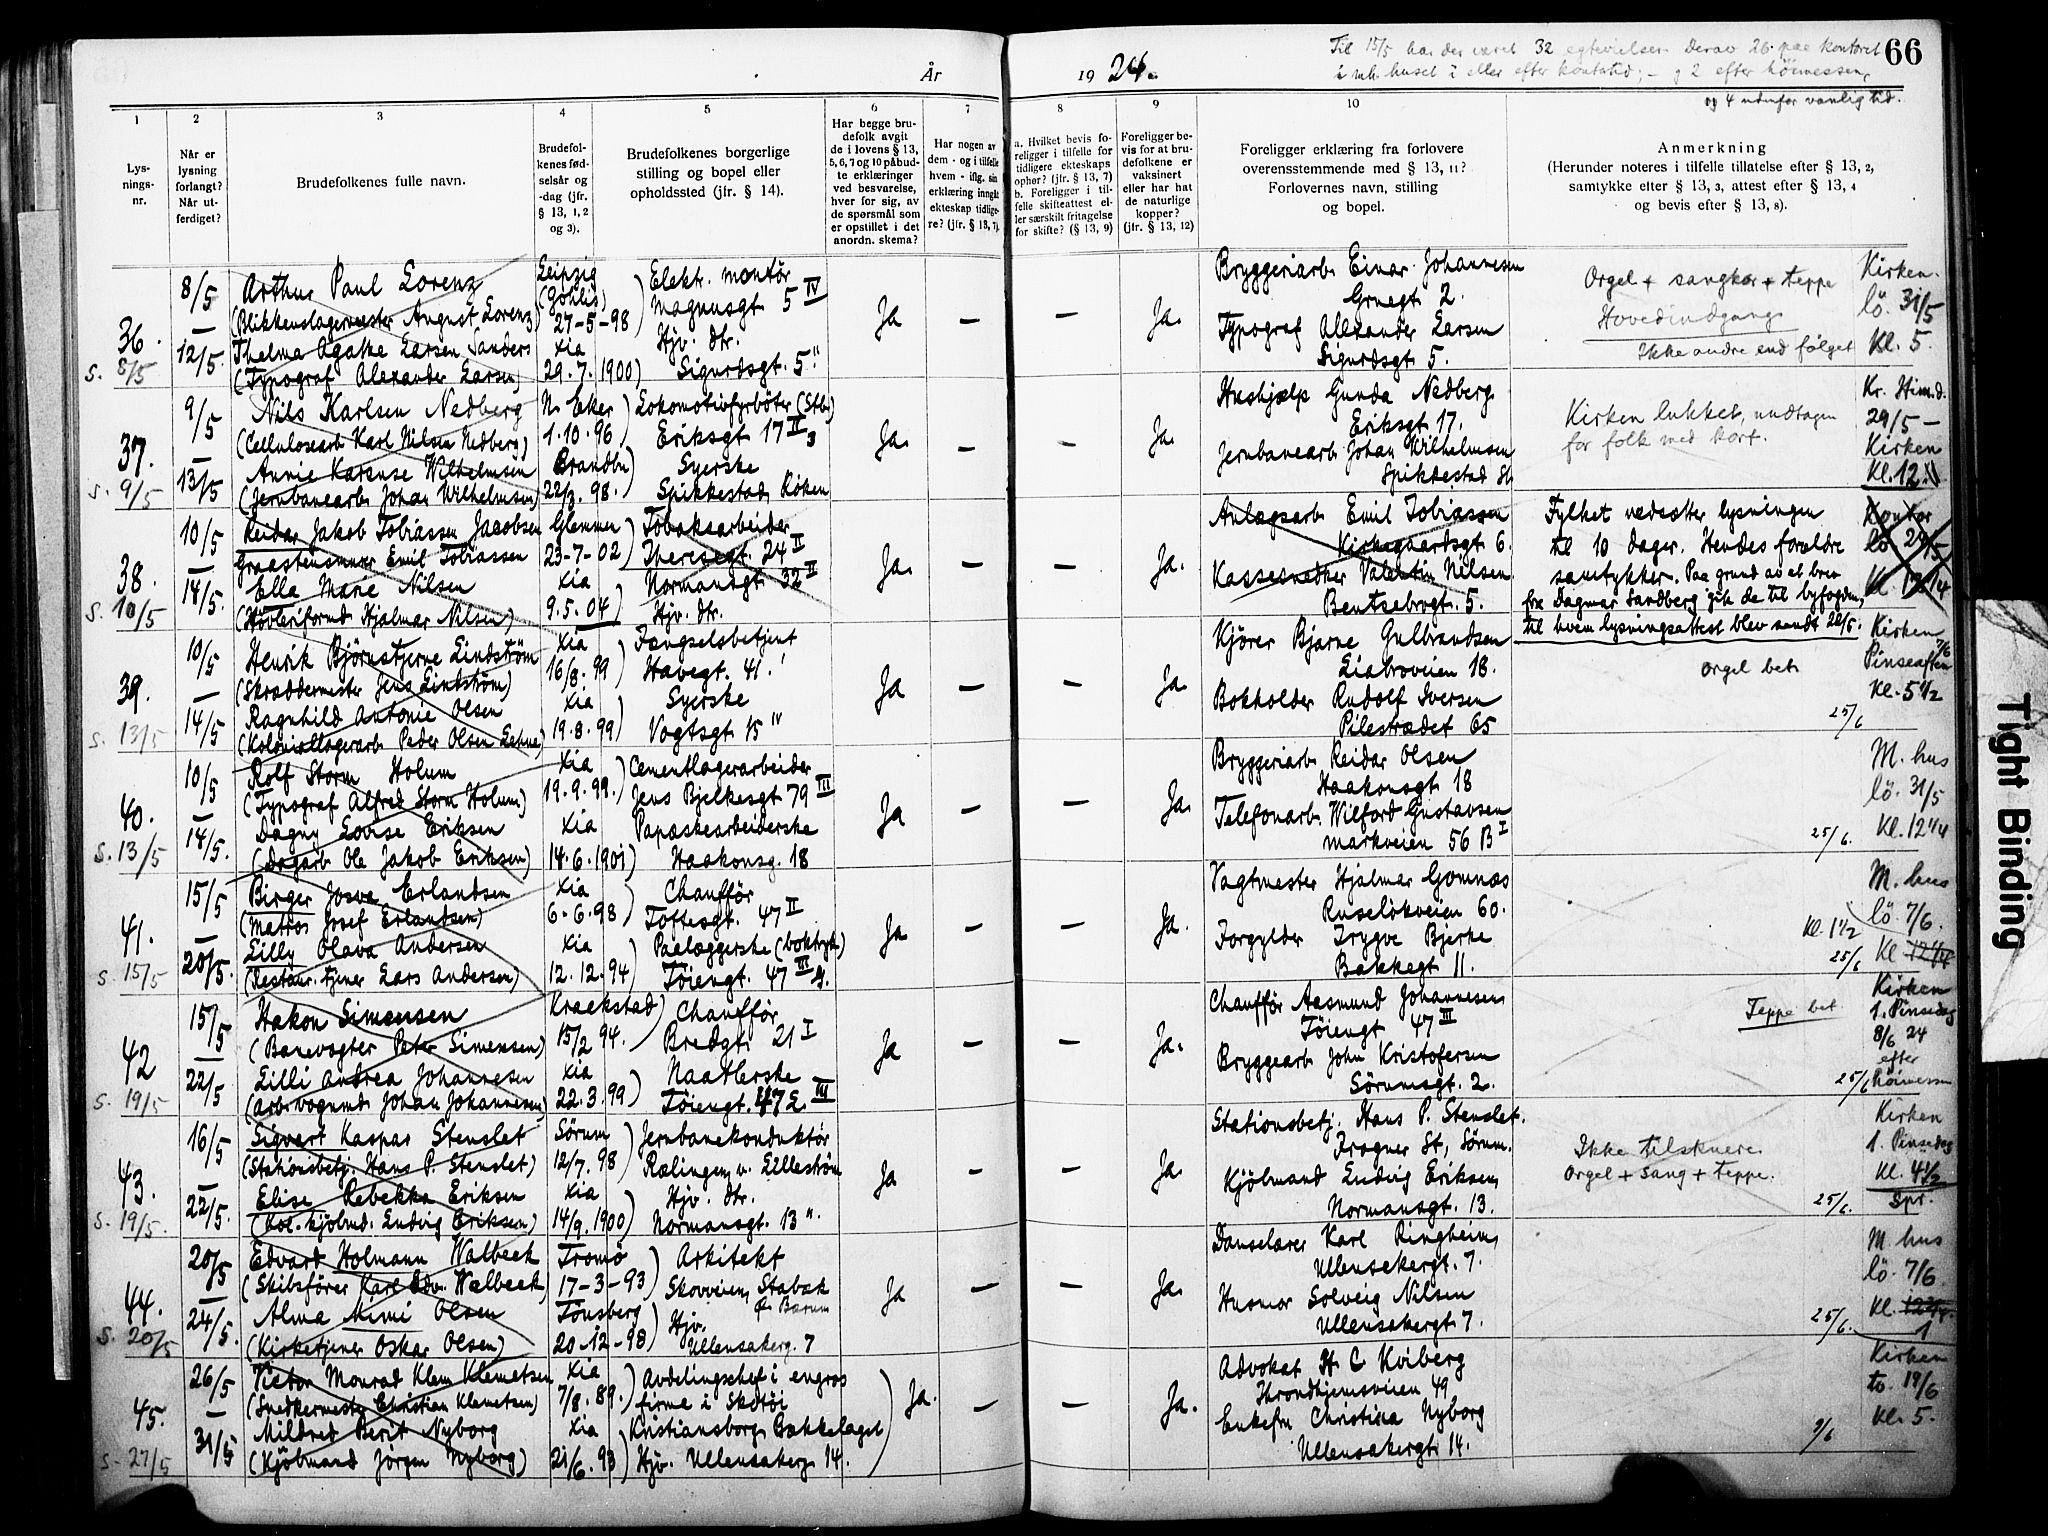 År 1924.
66
Til 15/5 har der været 32 egtevielser. Derav 26 paa kontoret
i mh. huset i eller efter kontstid; – og 2 efter höimessen,
og 4 utenfor vanlig tid.
1
2
3
4
5
6
7
8
9
10
Lysningsnr.
Når er lysning forlangt? Når utferdiget?
Brudefolkenes fulle navn.
Brudefolkenes fødselsår og -dag (jfr. § 13, 1, 2 og 3).
Brudefolkenes borgerlige stilling og bopel eller opholdssted (jfr. § 14).
Har begge brudefolk avgit de i lovens § 13, 5, 6, 7 og 10 påbudte erklæringer ved besvarelse, hver for sig, av de spørsmål som er opstillet i det anordn. skema?
Har nogen av dem - og i tilfelle hvem - iflg. sin erklæring inngått ekteskap tidligere? (jfr. § 13, 7).
a. Hvilket bevis foreligger i tilfelle for tidligere ekteskaps ophør? (jfr. § 13, 7) b. Foreligger i tilfelle skifteattest eller særskilt fritagelse for skifte? (§ 13, 9)
Foreligger bevis for at brudefolkene er vaksinert eller har hat de naturlige kopper? (jfr. § 13, 12)
Foreligger erklæring fra forlovere overensstemmende med § 13, 11? Forlovernes navn, stilling og bopel.
Anmerkning
(Herunder noteres i tilfelle tillatelse efter § 13, 2, samtykke efter § 13, 3, attest efter § 13, 4 og bevis efter § 13, 8).
36.
s. 8/5
8/5 – 12/5
Arthur Paul Lorenz
(Blikkenslagermester August Lorenz)
Thelma Agathe Larsen Sanders
(Typograf Alexander Larsen)
Leipzig
(Gohlis)
27-5-98
Kia
29.7.1900
Elektr. montör
Magnusgt. 5 IV
Hjv. dtr.
Sigurdsgt. 5 "
Ja
–
–
Ja.
Bryggeriarb. Einar Johannesen
Gruegt. 2.
Typograf Alexander Larsen
Sigurdsgt. 5.
Orgel + sangkor + teppe
Hovedindgang
Ikke andre end følget
Kirken.
lö. 31/5
Kl. 5.
37.
s. 9/5
9/5 – 13/5
Nils Karlsen Nedberg
(Cellulosearb. Karl Nilsen Nedberg)
Annie Karense Wilhelmsen
(Jernbanearb. Johan Wilhelmsen)
N. Eker
1.10.96
Brandbu
22/3. 98.
Lokomotivfyrböter (Stb.)
Eriksgt. 17 II 3
Syerske
Spikkestad, Röken
Ja.
–
–
Ja.
Hushjælp Gunda Nedberg
Eriksgt. 17.
Jernbanearb. Johan Wilhelmsen
Spikkestad St.
Kirken lukket, undtagen
for folk med kort.
Kr. Him.d.
29/5 –
Kirken
Kl. 12.
38.
s. 10/5
10/5 – 14/5
Reidar Jakob Tobiassen Jacobsen
Graastensmurer Emil Tobiassen
Ella Marie Nilsen
(Hövleriformd. Hjalmar Nilsen)
Glemmen
23-7-02
Kia
9.5.04
Tobaksarbeider
Theresegt. 24 II
Normansgt. 32 II
Hjv. dtr.
Ja.
–
–
Ja.
Anlægsarb. Emil Tobiassen
Kirkegaardsgt. 6.
Kassesnedker Valentin Nilsen
Bentsebrogt. 5.
Fylket nedsætter lysningen
til 10 dager. Hendes forældre
samtykker. Paa grund av et brev
fra Dagmar Sandberg gik de til byfogden,
til hvem lysningsattest blev sendt 28/5.
Kontor
lö. 24/5
Kl. 12 1/4
39.
s. 13/5
10/5 – 14/5
Henrik Bjørnstjerne Lindström
(Skræddermester Jens Lindström)
Ragnhild Antonie Olsen
(Koloniallagerarb. Peder Olsen Lehne)
Kia
16/8. 99
Kia
19.8.99
Fængselsbetjent
Havegt. 4 I.
Syerske
Vogtsgt. 15 IV
Ja
–
–
Ja.
Kjörer Bjarne Gulbrandsen
Liabroveien 18.
Bokholder Rudolf Iversen
Pilestrædet 65
orgel bet.
25/6
Kirken
Pinseaften 7/6
Kl. 5 1/2
40.
s. 13/5
10/5 – 14/5.
Rolf Storm Holum
(Typograf Alfred Storm Holum)
Dagny Lovise Eriksen
(Dagarb. Ole Jakob Eriksen)
Kia
19.9.99.
Kia
14.6.1901
Cementlagerarbeider
Jens Bjelkesgt 79 III
Papæskearbeiderske
Haakonsg. 18
Ja
–
–
Ja.
Bryggeriarb. Reidar Olsen
Haakonsgt 18
Telefonarb. Wilford Gustavsen
Markveien 56 B I
25/6.
M. hus
lö. 31/5
Kl. 12 1/4
41.
s. 15/5
15/5 – 20/5.
Birger Josva Erlandsen
(Matros Josef Erlandsen)
Lilly Olava Andersen
(Restaur. tjener Lars Andersen)
Kia
6-6.98
Kia
12.12.94
Chaufför
Toftesgt. 47 II
Paalæggerske (boktryk.)
Töiengt. 47 III
Ja
–
–
Ja.
Vagtmester Hjalmar Gomnæs
Ruselökveien 60.
Forgylder Trygve Bjerke
Bakkegt. 11.
Kl. 1 1/2
25/6
M. hus
lö. 7/6.
Kl. 12 1/4
42
s. 19/5
15/5 – 22/5
Hakon Simensen
(Banevogter Peter Simensen)
Lilli Andrea Johannesen
(Arb. vognmd. Johan Johannesen)
Kraekstad
15/2 94.
Kia
22.3.99
Chaufför
Bredgt. 21 I
Naatlerske
Töiengt. 47 2 III
Ja
–
–
Ja.
Chaufför Aasmund Johannesen
Töiengt 47 III
Bryggearb. John Kristofersen
Sörumsgt. 2.
Teppe bet
25/6
Kirken
1. Pinsedag
8/6 24
efter
höimessen
43.
s. 19/5.
16/5 – 22/5.
Sigvart Kaspar Stenslet
(Stationsbetj. Hans P. Stenslet)
Elise Rebekka Eriksen
(Kol-kjölmd. Ludvig Eriksen)
Sörum
12/7. 98
Kia
14/9. 1900
Jernbanekonduktör
Rælingen v. Lilleström
Hjv. dtr.
Normansgt. 13 ".
Ja
–
–
Ja
Stationsbetj. Hans P. Stenslet.
Frogner St, Sörum.
Kjölmand Ludvig Eriksen,
Normansgt. 13.
Ikke tilskuere
Orgel + Sang + teppe.
25/6.
Kirken
1. Pinsedag
Kl. 4 1/2
Spr.
44.
s. 20/5
20/5 – 24/5.
Edvard Holmann Walbeck
(Skibsförer Karl Edv. Walbeck)
Alma Mimi Olsen
(Kirketjener Oskar Olsen)
Tromö
17-3-93
Tönsberg
20-12-98
Arkitekt
Skovveien, Stabæk
Ö. Bærum
Hjv.
Ullensakerg. 7
Ja
–
–
Ja.
Danselærer Karl Ringheim,
Ullensakergt. 7.
Husmor Solveig Nilsen
Ullensakergt 7.
25/6.
M. hus
lö. 7/6.
Kl. 12 3/4.
1
45.
s. 27/5
26/5 – 31/5
Victor Monrad Klem Klemetsen
(Snedkermester Christian Klemetsen)
Mildred Berit Nyborg
(Kjöbmand Jörgen Nyborg)
Kia
7/8. 89.
Kia
21/6. 93
Avdelingschef i engros
firma i Skotöi
Kristiansborg, Bækkelaget
Hjv. Ullensakerg. 14.
Ja.
–
–
Ja.
Advokat H. C. Kviberg
Throndhjemsveien 49
Enkefru Christina Nyborg
Ullensakergt. 14.
9/6
Kirken
to. 19/6
Kl. 5.
Tight Binding